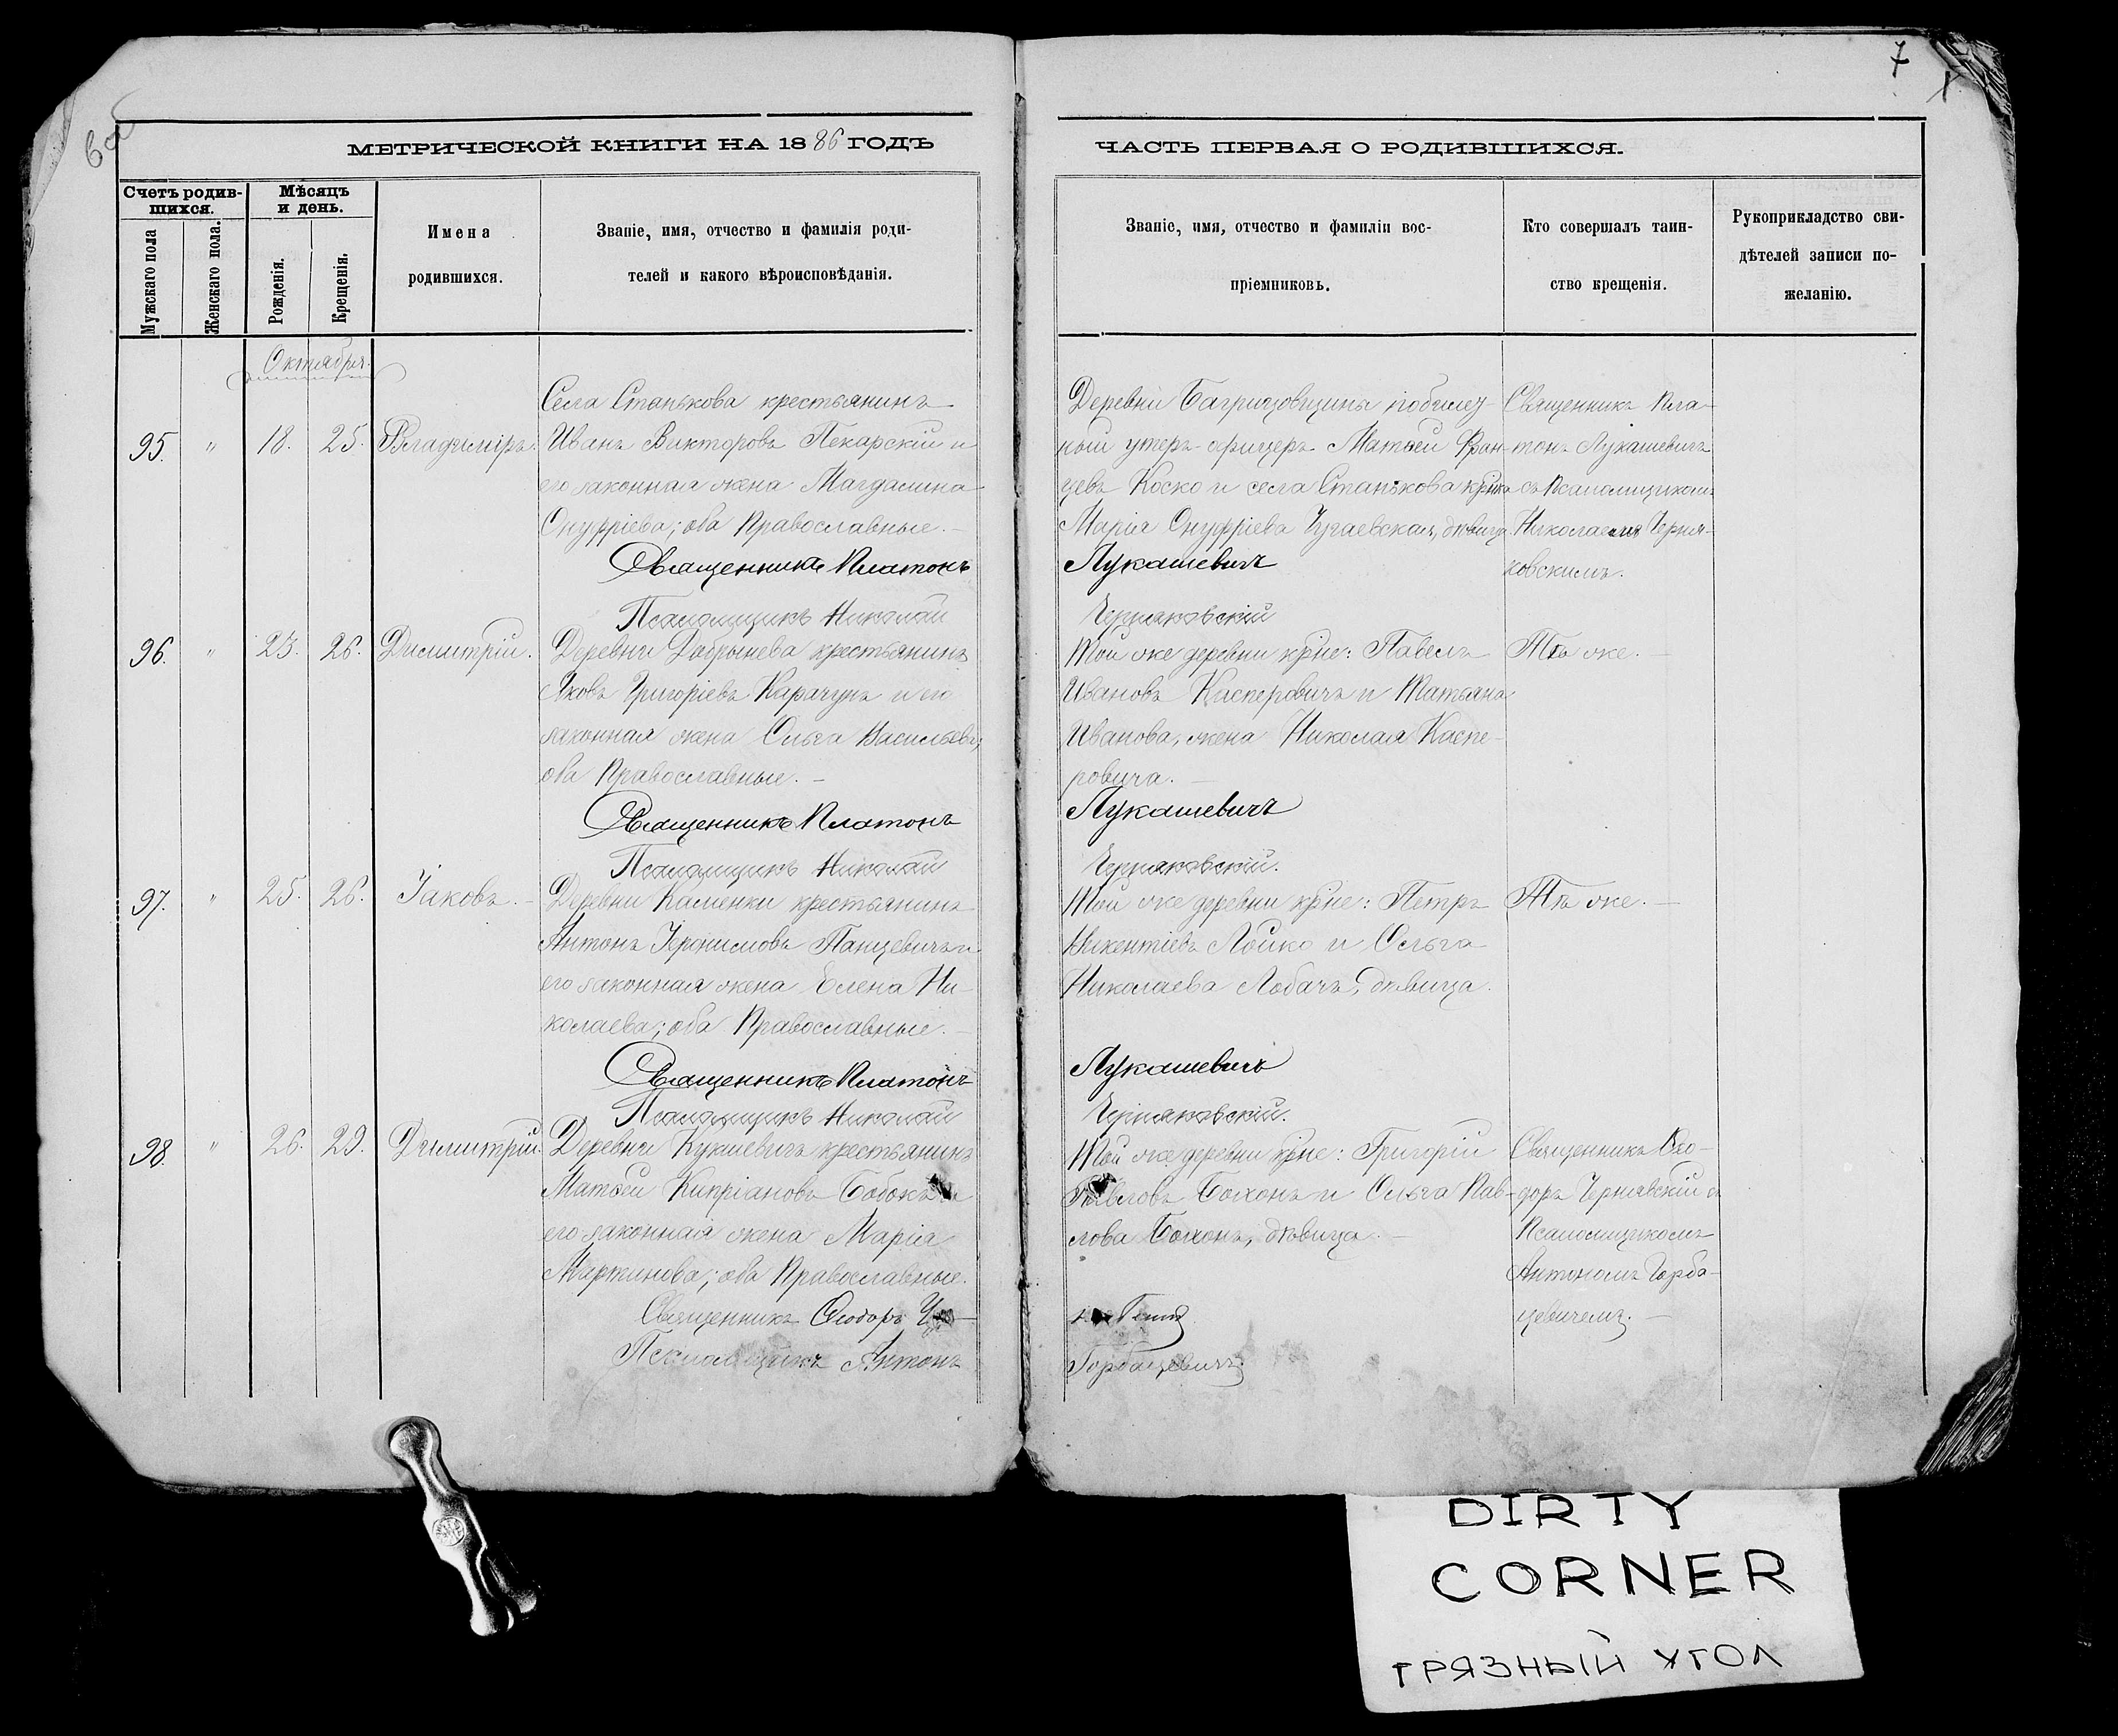 7
МЕТРИЧЕСКОЙ КНИГИ НА 1886 ГОДЪ
ЧАСТЬ ПЕРВАЯ О РОДИВШИХСЯ.
Счетъ родив-
шихся.
Мужскаго пола
Женскаго пола.
Мѣсяцъ
и день.
Рожденія.
Крещенія.
Имена
родившихся.
Званіе, имя, отчество и фамилія роди-
телей и какого вѣроисповѣданія.
Званіе, имя, отчество и фамиліи вос-
пріемниковъ.
Кто совершалъ таин-
ство крещенія.
Рукоприкладство сви-
дѣтелей записи по-
желанію.
Октября.
95. " 18. 25. Владиміръ.
Села Станькова крестьянинъ
Иванъ Викторовъ Пекарскій и
его законная жена Магдалина
Онуфріева; оба Православные. –
Священникъ Платонъ
Псаломщикъ Николай
Деревни Багриновщины
ный унтеръ-офицеръ Матѳей Фран-
цевъ Коско и села Станькова
Марія Онуфріева дѣвица
Лукашевичъ
Черняковскій
Священникъ Пла-
тонъ Лукашевичъ
съ Псаломщикомъ
Николаемъ Черня-
ковскимъ.
96. " 23. 26. Димитрій.
Деревни Добрынева крестьянинъ
Яковъ Григоріевъ Карачунъ и его
законная жена Ольга Васильева;
оба Православные. –
Священникъ Платонъ
Псаломщикъ Николай
Той же деревни крне: Павелъ
Ивановъ Касперовичъ и Татьяна
Иванова, жена Николая Каспе-
ровича. –
Лукашевичъ
Черняковскій.
Тѣ же. –
97. " 25. 26. Іаковъ. –
Деревни Каменки крестьянинъ
Антонъ Іеронимовъ Панцевичъ и
его законная жена Елена Ни-
колаева; оба Православные. –
Священникъ Платонъ
Псаломщикъ Николай
Той же деревни крне: Петръ
Викентіевъ Лойко и Ольга
Николаева Лобачъ, дѣвица.
Лукашевичъ
Черняковскій.
Тѣ же. –
98. " 26. 29. Димитрій.
Деревни Кукшевичъ крестьянинъ
Матѳей Кипріановъ Бобокъ и
его законная жена Марія
Мартинова; оба Православные.
Священникъ Ѳеодоръ
Псаломщикъ Антонъ
Той же деревни крне: Григорій
Павловъ Боханъ и Ольга Пав-
лова Боханъ, дѣвица. –
Горбацевичъ
Священникъ Ѳео-
доръ Чернявскій съ
Псаломщикомъ
Антономъ Горба-
цевичемъ. –
DIRTY
CORNER
ГРЯЗНЫЙ УГОЛ